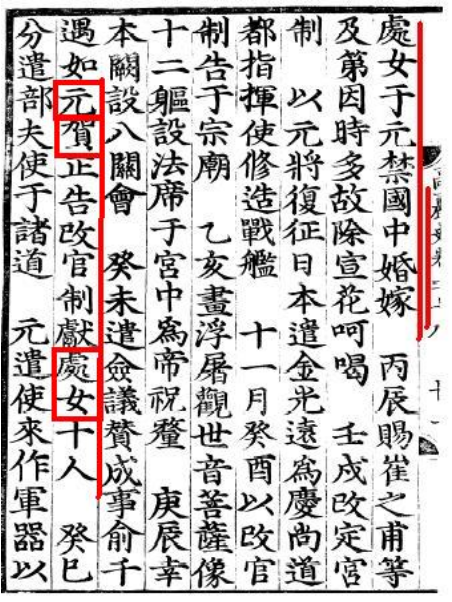 處女于元禁國中婚嫁　丙辰賜崔之甫等
及第因時多故除宣花呵喝　壬戌改定宮
制　以元將復征日本遣金光遠爲慶尚道
都指揮使修造戰艦　十一月癸酉以改官
制告于宗廟　乙亥畫浮屠觀世音菩薩像
十二軀設法席于宮中爲帝祝釐　庚辰幸
本闕設八關會　癸未遣僉議贊成事俞千
遇如元賀正告改官制獻處女十人　癸巳
分遣部夫使于諸道　元遣使來作軍器以